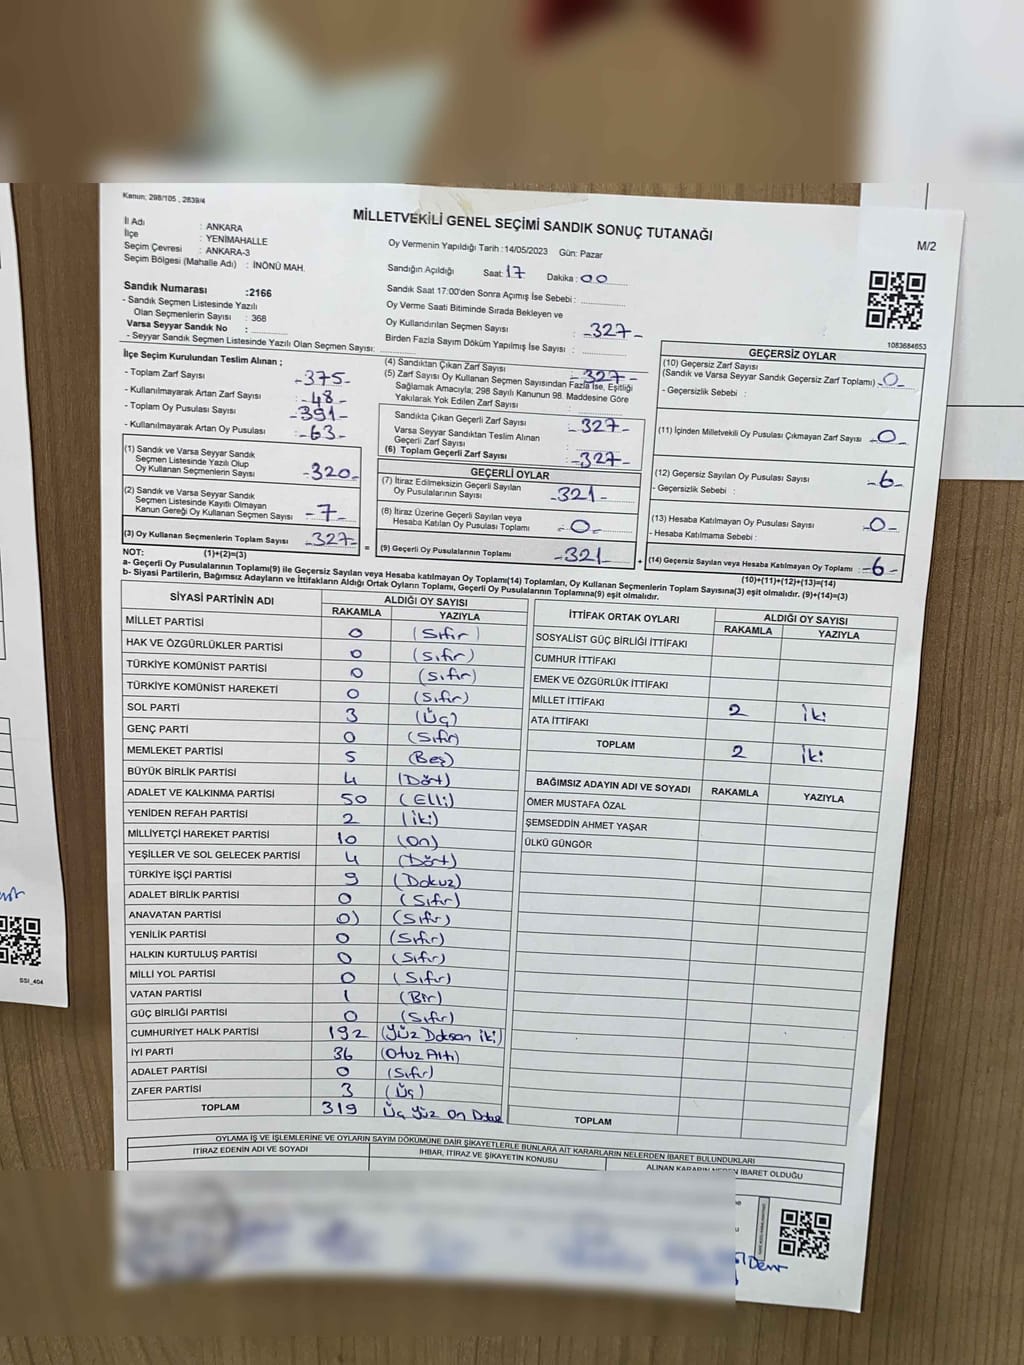 Kanun, 298/105 , 2839/4
MİLLETVEKİLİ GENEL SEÇİMİ SANDIK SONUÇ TUTANAĞI
M/2
İl Adı : ANKARA
İlçe : YENİMAHALLE
Seçim Çevresi : ANKARA-3
Seçim Bölgesi (Mahalle Adı) : İNÖNÜ MAH.
Oy Vermenin Yapıldığı Tarih : 14/05/2023 Gün: Pazar
Sandığın Açıldığı Saat: 17 Dakika : 00
Sandık Saat 17:00'den Sonra Açımış İse Sebebi :
Oy Verme Saati Bitiminde Sırada Bekleyen ve
Oy Kullandırılan Seçmen Sayısı : -327-
Birden Fazla Sayım Döküm Yapılmış İse Sayısı :
Sandık Numarası :2166
- Sandık Seçmen Listesinde Yazılı
Olan Seçmenlerin Sayısı : 368
Varsa Seyyar Sandık No :
- Seyyar Sandık Seçmen Listesinde Yazılı Olan Seçmen Sayısı:
1083684653
İlçe Seçim Kurulundan Teslim Alınan ;
- Toplam Zarf Sayısı : -375-
- Kullanılmayarak Artan Zarf Sayısı : -48-
- Toplam Oy Pusulası Sayısı : -391-
- Kullanılmayarak Artan Oy Pusulası : -63-
(1) Sandık ve Varsa Seyyar Sandık
Seçmen Listesinde Yazılı Olup
Oy Kullanan Seçmenlerin Sayısı : -320-
(2) Sandık ve Varsa Seyyar Sandık
Seçmen Listesinde Kayıtlı Olmayan
Kanun Gereği Oy Kullanan Seçmen Sayısı : -7-
(3) Oy Kullanan Seçmenlerin Toplam Sayısı : -327-
(4) Sandıktan Çıkan Zarf Sayısı : -327-
(5) Zarf Sayısı Oy Kullanan Seçmen Sayısından Fazla İse, Eşitliği
Sağlamak Amacıyla; 298 Sayılı Kanunun 98. Maddesine Göre
Yakılarak Yok Edilen Zarf Sayısı :
Sandıkta Çıkan Geçerli Zarf Sayısı : -327-
Varsa Seyyar Sandıktan Teslim Alınan
Geçerli Zarf Sayısı :
(6) Toplam Geçerli Zarf Sayısı : -327-
GEÇERLİ OYLAR
(7) İtiraz Edilmeksizin Geçerli Sayılan
Oy Pusulalarının Sayısı : -321-
(8) İtiraz Üzerine Geçerli Sayılan veya
Hesaba Katılan Oy Pusulası Toplamı : -0-
= (9) Geçerli Oy Pusulalarının Toplamı : -321
GEÇERSİZ OYLAR
(10) Geçersiz Zarf Sayısı
(Sandık ve Varsa Seyyar Sandık Geçersiz Zarf Toplamı) -0-
- Geçersizlik Sebebi :
(11) İçinden Milletvekili Oy Pusulası Çıkmayan Zarf Sayısı : -0-
(12) Geçersiz Sayılan Oy Pusulası Sayısı : -6-
- Geçersizlik Sebebi :
(13) Hesaba Katılmayan Oy Pusulası Sayısı : -0-
- Hesaba Katılmama Sebebi :
+ (14) Geçersiz Sayılan veya Hesaba Katılmayan Oy Toplamı : -6-
NOT: (1)+(2)=(3)
(10)+(11)+(12)+(13)=(14)
a- Geçerli Oy Pusulalarının Toplamı(9) ile Geçersiz Sayılan veya Hesaba katılmayan Oy Toplamı(14) Toplamları, Oy Kullanan Seçmenlerin Toplam Sayısına(3) eşit olmalıdır. (9)+(14)=(3)
b- Siyasi Partilerin, Bağımsız Adayların ve İttifakların Aldığı Ortak Oyların Toplamı, Geçerli Oy Pusulalarının Toplamına(9) eşit olmalıdır.
SİYASİ PARTİNİN ADI ALDIĞI OY SAYISI
RAKAMLA YAZIYLA
MİLLET PARTİSİ 0 (Sıfır)
HAK VE ÖZGÜRLÜKLER PARTİSİ 0 (Sıfır)
TÜRKİYE KOMÜNİST PARTİSİ 0 (Sıfır)
TÜRKİYE KOMÜNİST HAREKETİ 0 (Sıfır)
SOL PARTİ 3 (Üç)
GENÇ PARTİ 0 (Sıfır)
MEMLEKET PARTİSİ 5 (Beş)
BÜYÜK BİRLİK PARTİSİ 4 (Dört)
ADALET VE KALKINMA PARTİSİ 50 (Elli)
YENİDEN REFAH PARTİSİ 2 (İki)
MİLLİYETÇİ HAREKET PARTİSİ 10 (On)
YEŞİLLER VE SOL GELECEK PARTİSİ 4 (Dört)
TÜRKİYE İŞÇİ PARTİSİ 9 (Dokuz)
ADALET BİRLİK PARTİSİ 0 (Sıfır)
ANAVATAN PARTİSİ 0) (Sıfır)
YENİLİK PARTİSİ 0 (Sıfır)
HALKIN KURTULUŞ PARTİSİ 0 (Sıfır)
MİLLİ YOL PARTİSİ 0 (Sıfır)
VATAN PARTİSİ 1 (Bir)
GÜÇ BİRLİĞİ PARTİSİ 0 (Sıfır)
CUMHURİYET HALK PARTİSİ 192 (Yüz Doksan iki)
İYİ PARTİ 36 (Otuz Altı)
ADALET PARTİSİ 0 (Sıfır)
ZAFER PARTİSİ 3 (Üç)
TOPLAM 319 Üç Yüz On Dokuz
İTTİFAK ORTAK OYLARI ALDIĞI OY SAYISI
RAKAMLA YAZIYLA
SOSYALİST GÜÇ BİRLİĞİ İTTİFAKI
CUMHUR İTTİFAKI
EMEK VE ÖZGÜRLÜK İTTİFAKI
MİLLET İTTİFAKI 2 iki
ATA İTTİFAKI
TOPLAM 2 iki
BAĞIMSIZ ADAYIN ADI VE SOYADI RAKAMLA YAZIYLA
ÖMER MUSTAFA ÖZAL
ŞEMSEDDİN AHMET YAŞAR
ÜLKÜ GÜNGÖR
TOPLAM
OYLAMA İŞ VE İŞLEMLERİNE VE OYLARIN SAYIM DÖKÜMÜNE DAİR ŞİKAYETLERLE BUNLARA AİT KARARLARIN NELERDEN İBARET BULUNDUKLARI
İTİRAZ EDENİN ADI VE SOYADI İHBAR, İTİRAZ VE ŞİKAYETİN KONUSU ALINAN KARARIN NEDEN İBARET OLDUĞU
SSI_404